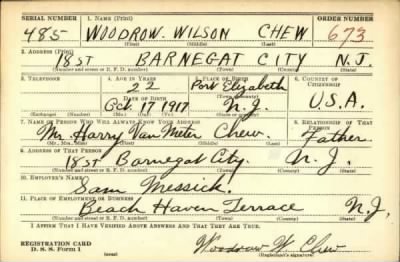 SERIAL NUMBER 1. NAME (Print) ORDER NUMBER
485 WOODROW. WILSON CHEW 673
(First) (Middle) (Last)
2. ADDRESS (Print)
18ST BARNEGAT CITY N.J.
(Number and street or R. F. D. number) (Town) (County) (State)
3. TELEPHONE 4. AGE IN YEARS 5. PLACE OF BIRTH 6. COUNTRY OF CITIZENSHIP
22 Port Elizabeth
DATE OF BIRTH (Town or county)
Oct. 17 1917 N.J. U.S.A.
(Exchange) (Number) (Mo.) (Day) (Yr.) (State or country)
7. NAME OF PERSON WHO WILL ALWAYS KNOW YOUR ADDRESS 8. RELATIONSHIP OF THAT PERSON
Mr. Harry Van Meter Chew. Father
(Mr., Mrs., Miss) (First) (Middle) (Last)
9. ADDRESS OF THAT PERSON
18ST Barnegat City. N.J.
(Number and street or R. F. D. number) (Town) (County) (State)
10. EMPLOYER'S NAME
Sam Messick.
11. PLACE OF EMPLOYMENT OR BUSINESS
Beach Haven Terrace N.J.
(Number and street or R. F. D. number) (Town) (County) (State)
I AFFIRM THAT I HAVE VERIFIED ABOVE ANSWERS AND THAT THEY ARE TRUE.
REGISTRATION CARD
D. S. S. Form 1 Woodrow W. Chew
(over) (Registrant's signature)